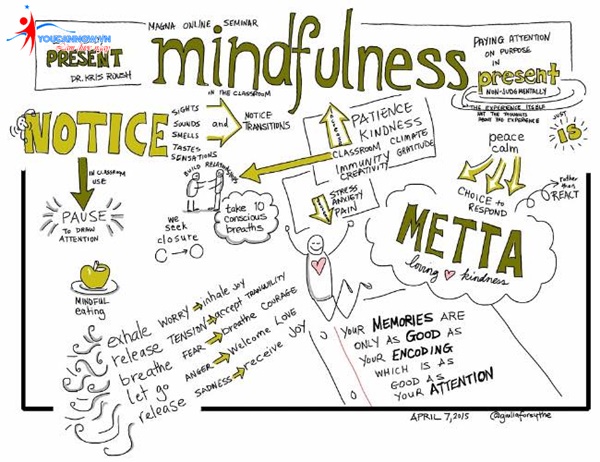 YOUCANNOW.VN
MAGNA ONLINE SEMINAR
PRESENT
DR. KRIS ROUSH
mindfulness
IN THE CLASSROOM
PAYING ATTENTION
ON PURPOSE
IN
present
NON-JUDGMENTALLY
THE EXPERIENCE ITSELF
NOT THE THOUGHTS
ABOUT THE EXPERIENCE
JUST
IS
NOTICE
SIGHTS
SOUNDS and
SMELLS
TASTES
SENSATIONS
NOTICE
TRANSITIONS
PATIENCE
KINDNESS
CLASSROOM CLIMATE
IMMUNITY GRATITUDE
CREATIVITY
STRESS
ANXIETY
PAIN
peace
calm
CHOICE to
RESPOND
rather
than
REACT
IN CLASSROOM
USE
PAUSE
TO DRAW
ATTENTION
BUILD RELATIONSHIPS
we
seek
closure
take 10
conscious
breaths
METTA
loving kindness
MINDFUL
eating
exhale WORRY inhale JOY
release TENSION accept TRANQUILITY
breathe FEAR breathe COURAGE
let go ANGER Welcome LOVE
release SADNESS receive JOY
YOUR MEMORIES ARE
ONLY AS GOOD AS
YOUR ENCODING
WHICH IS AS
GOOD AS
YOUR ATTENTION
APRIL 7, 2015
@giuliaforsythe